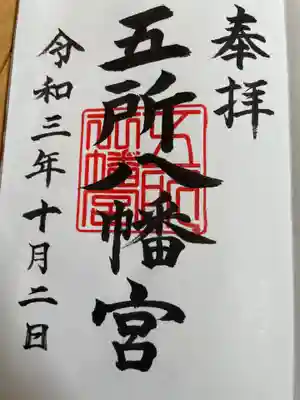 奉拝
五所八幡宮
令和三年十月二日